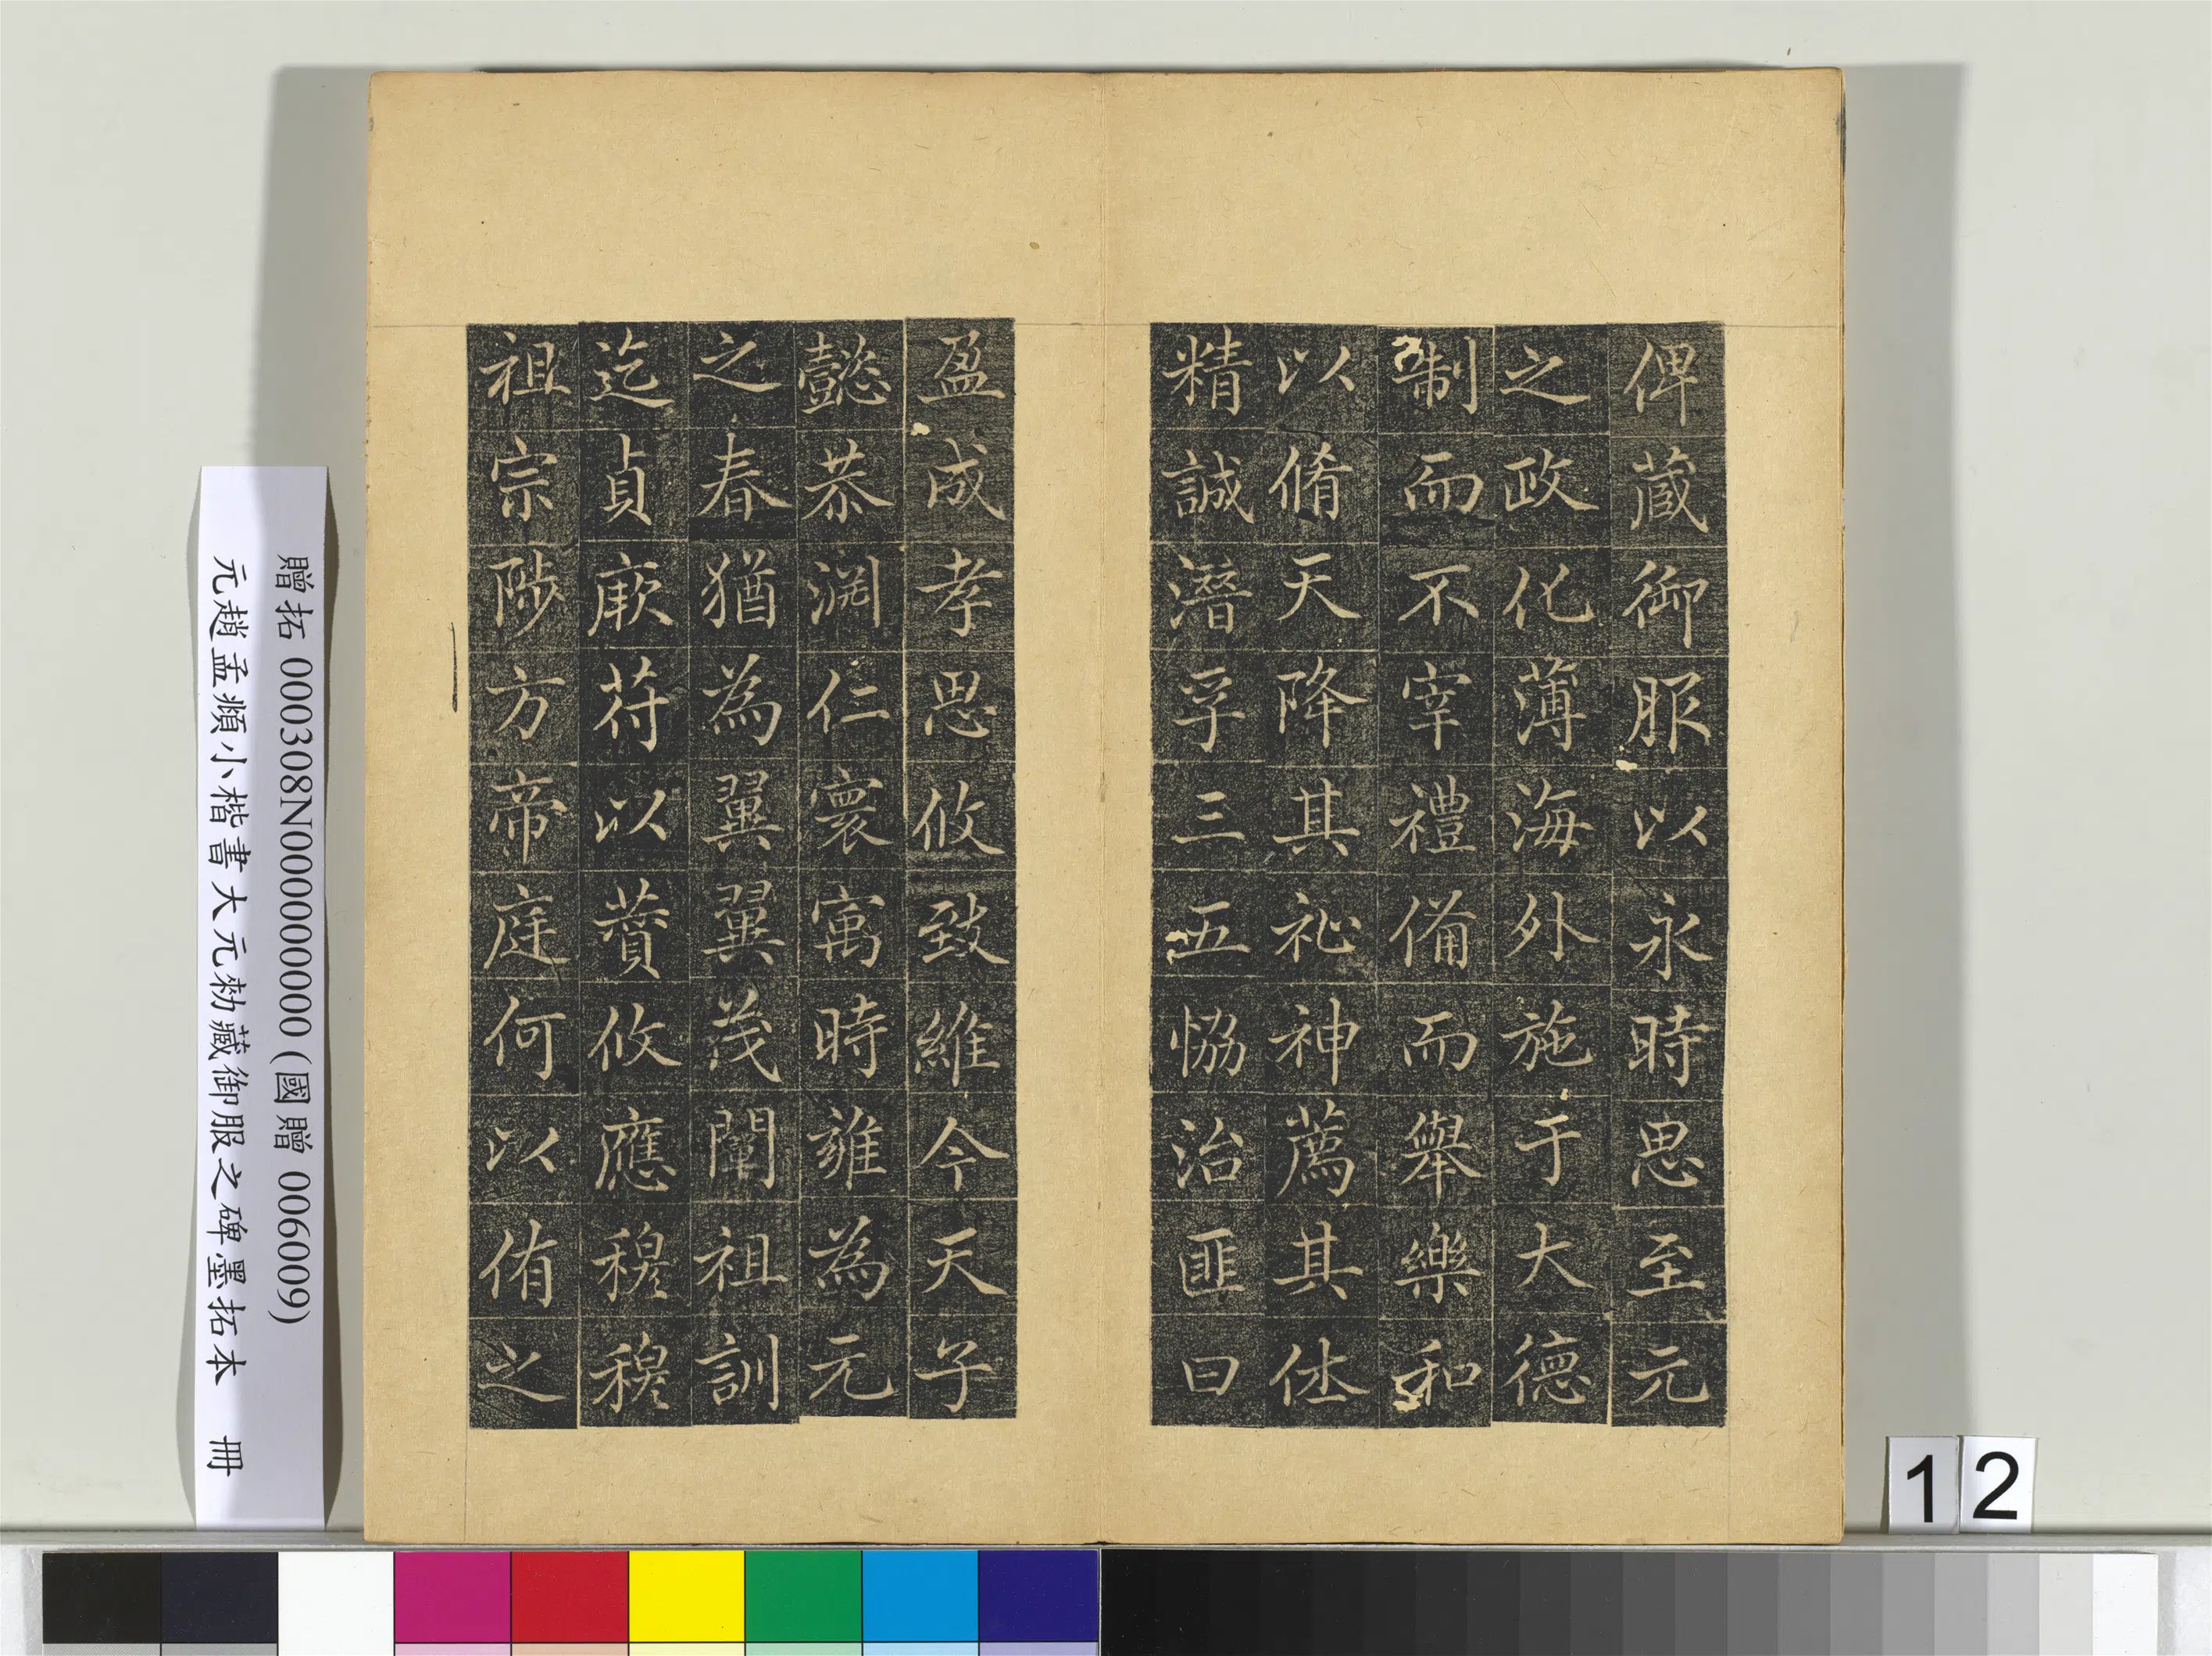 俾蔵御服以永時思至元
之政化薄海外施于大德
制而不宰禮備而舉樂和
以脩天降其祉神薦其休
精誠潛孚三五恊治匪曰
盈成孝思攸致維今天子
懿恭淵仁寰寓時雍為元
之春猶為翼翼茂闡祖訓
迄貞厥符以蕡攸應穆穆
祖宗陟方帝庭何以侑之
贈拓 000308N000000000 (國贈 006009)
元趙孟頫小楷書大元勑藏御服之碑墨拓本 冊
12